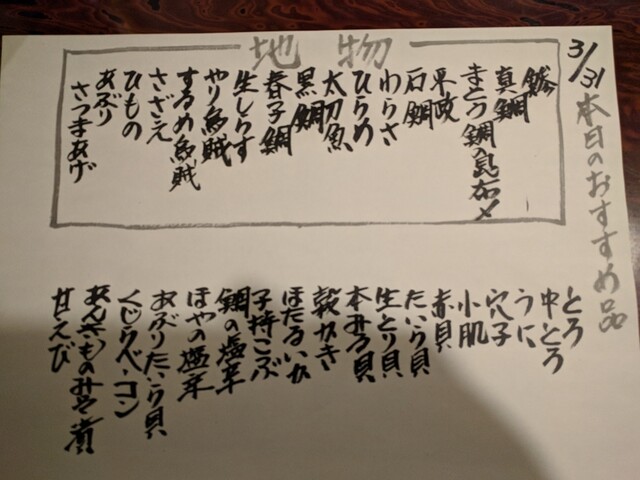 3/31 本日のおすすめ品
地物
真鯛
まとう鯛の昆布〆
平政
石鯛
わらさ
ひらめ
太刀魚
黒鯛
春子鯛
生しらす
やり烏賊
するめ烏賊
さざえ
ひもの
あぶり
さつまあげ
とろ
中とろ
うに
穴子
小肌
赤貝
たいら貝
生とり貝
本みる貝
殻かき
ほたるいか
子持こぶ
鯛の塩辛
ほやの塩辛
あぶりたいら貝
くじらベーコン
あんきものみそ煮
甘えび